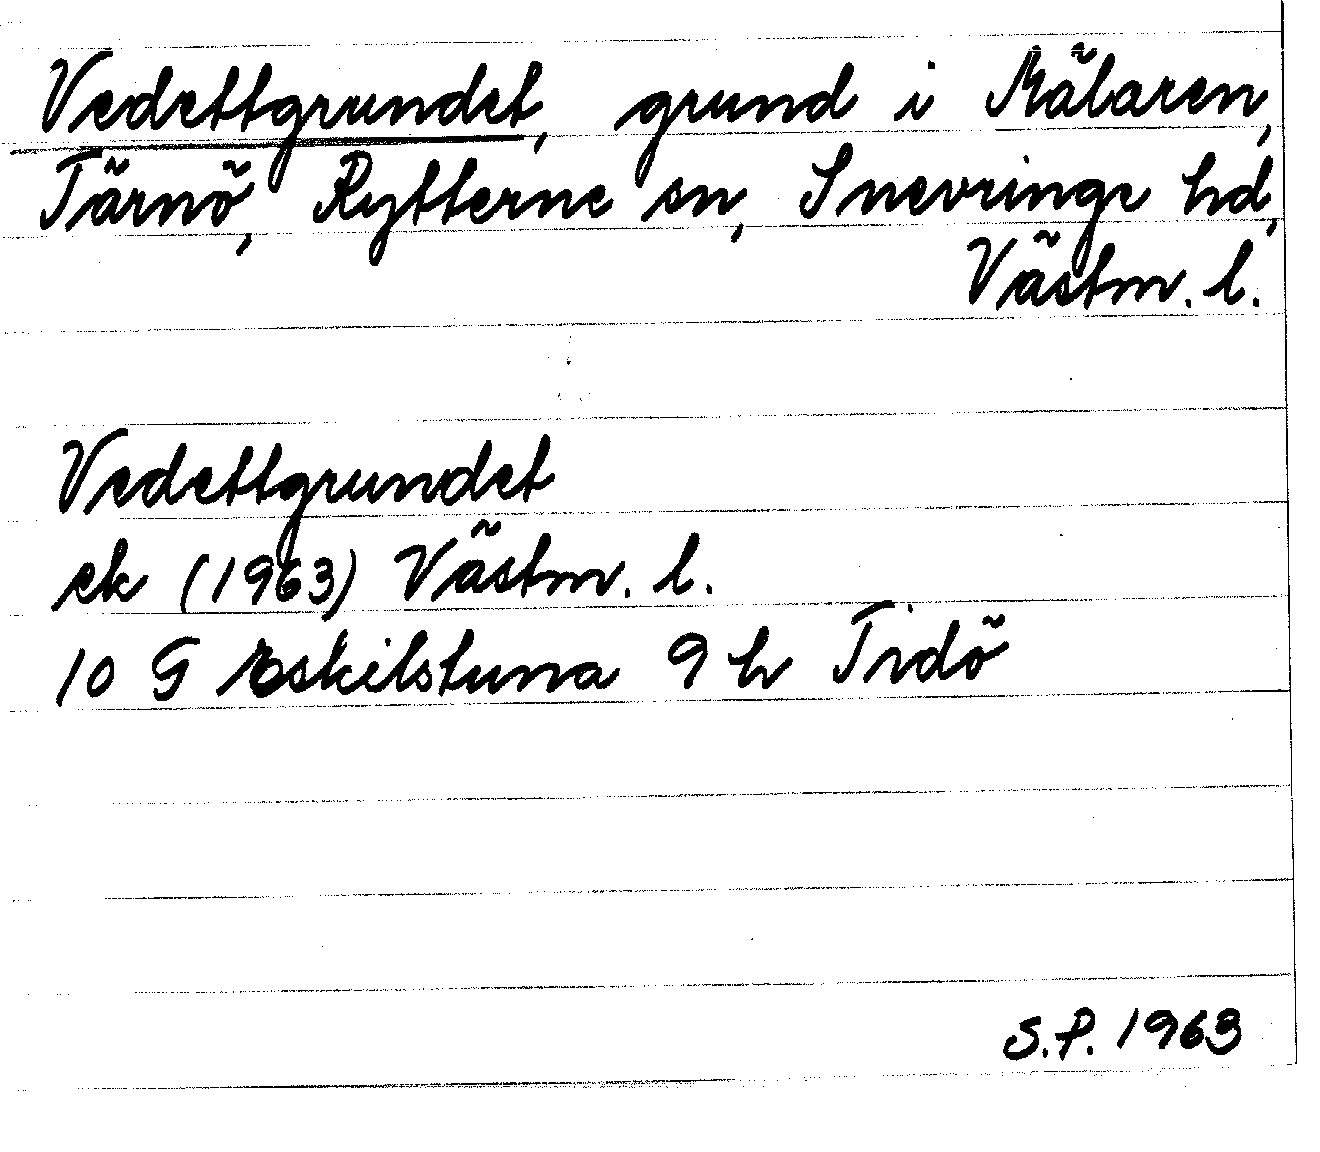 Vedettgrundet, grund i Mälaren,
Tärnö, Rytterne sn, Snevringe hd,
Västm. l.
Vedettgrundet
ek (1963) Västm. l.
10 G Eskilstuna 9 h Tidö
S.P. 1963